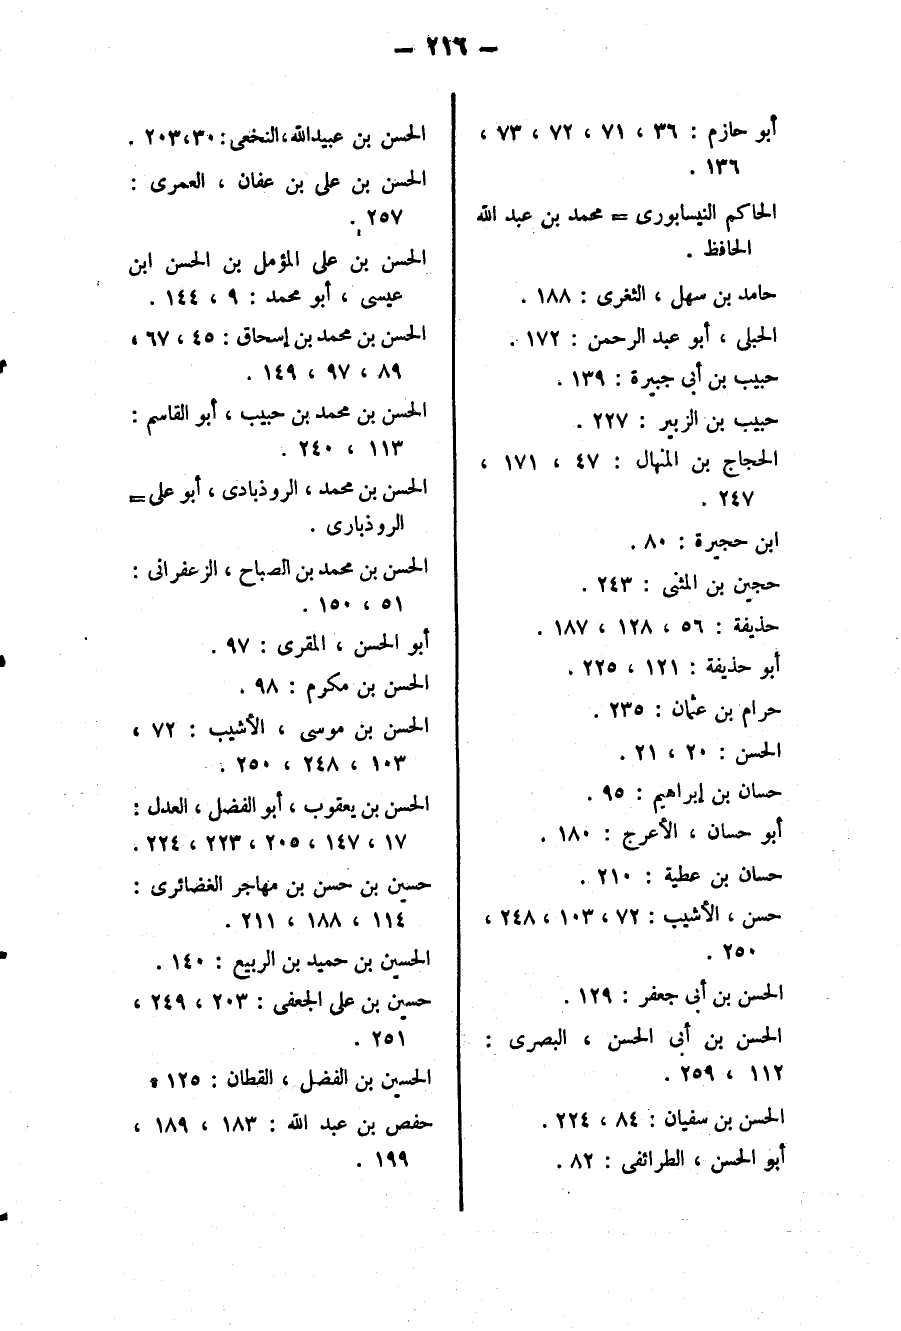 — ٢١٦ —
أبو حازم : ٣٦ ، ٧١ ، ٧٢ ، ٧٣ ،
١٣٦ .
الحاكم النيسابورى = محمد بن عبد الله
الحافظ .
حامد بن سهل ، الثغرى : ١٨٨ .
الحبلى ، أبو عبد الرحمن : ١٧٢ .
حبيب بن أبى جبيرة : ١٣٩ .
حبيب بن الزبير : ٢٢٧ .
الحجاج بن المنهال : ٤٧ ، ١٧١ ،
٢٤٧ .
ابن حجيرة : ٨٠ .
حجين بن المثنى : ٢٤٣ .
حذيفة : ٥٦ ، ١٢٨ ، ١٨٧ .
أبو حذيفة : ١٢١ ، ٢٢٥ .
حرام بن عثمان : ٢٣٥ .
الحسن : ٢٠ ، ٢١ .
حسان بن إبراهيم : ٩٥ .
أبو حسان ، الأعرج : ١٨٠ .
حسان بن عطية : ٢١٠ .
حسن ، الأشيب : ٧٢ ، ١٠٣ ، ٢٤٨ ،
٢٥٠ .
الحسن بن أبى جعفر : ١٢٩ .
الحسن بن أبى الحسن ، البصرى :
١١٢ ، ٢٥٩ .
الحسن بن سفيان : ٨٤ ، ٢٢٤ .
أبو الحسن ، الطرائفى : ٨٢ .
الحسن بن عبيدالله،النخعى : ٢٠٣،٣٠ .
الحسن بن على بن عفان ، العمرى :
٢٥٧ .
الحسن بن على المؤمل بن الحسن ابن
عيسى ، أبو محمد : ٩ ، ١٤٤ .
الحسن بن محمد بن إسحاق : ٤٥ ، ٦٧ ،
٨٩ ، ٩٧ ، ١٤٩ .
الحسن بن محمد بن حبيب ، أبو القاسم :
١١٣ ، ٢٤٠ .
الحسن بن محمد ، الروذبادى ، أبو على =
الروذبارى .
الحسن بن محمد بن الصباح ، الزعفرانى :
٥١ ، ١٥٠ .
أبو الحسن ، المقرى : ٩٧ .
الحسن بن مكرم : ٩٨ .
الحسن بن موسى ، الأشيب : ٧٢ ،
١٠٣ ، ٢٤٨ ، ٢٥٠ .
الحسن بن يعقوب ، أبو الفضل ، العدل :
١٧ ، ١٤٧ ، ٢٠٥ ، ٢٢٣ ، ٢٢٤ .
حسين بن حسن بن مهاجر الغضائرى :
١١٤ ، ١٨٨ ، ٢١١ .
الحسين بن حميد بن الربيع : ١٤٠ .
حسين بن على الجعفى : ٢٠٣ ، ٢٤٩ ،
٢٥١ .
الحسين بن الفضل ، القطان : ١٢٥ .
حفص بن عبد الله : ١٨٣ ، ١٨٩ ،
١٩٩ .